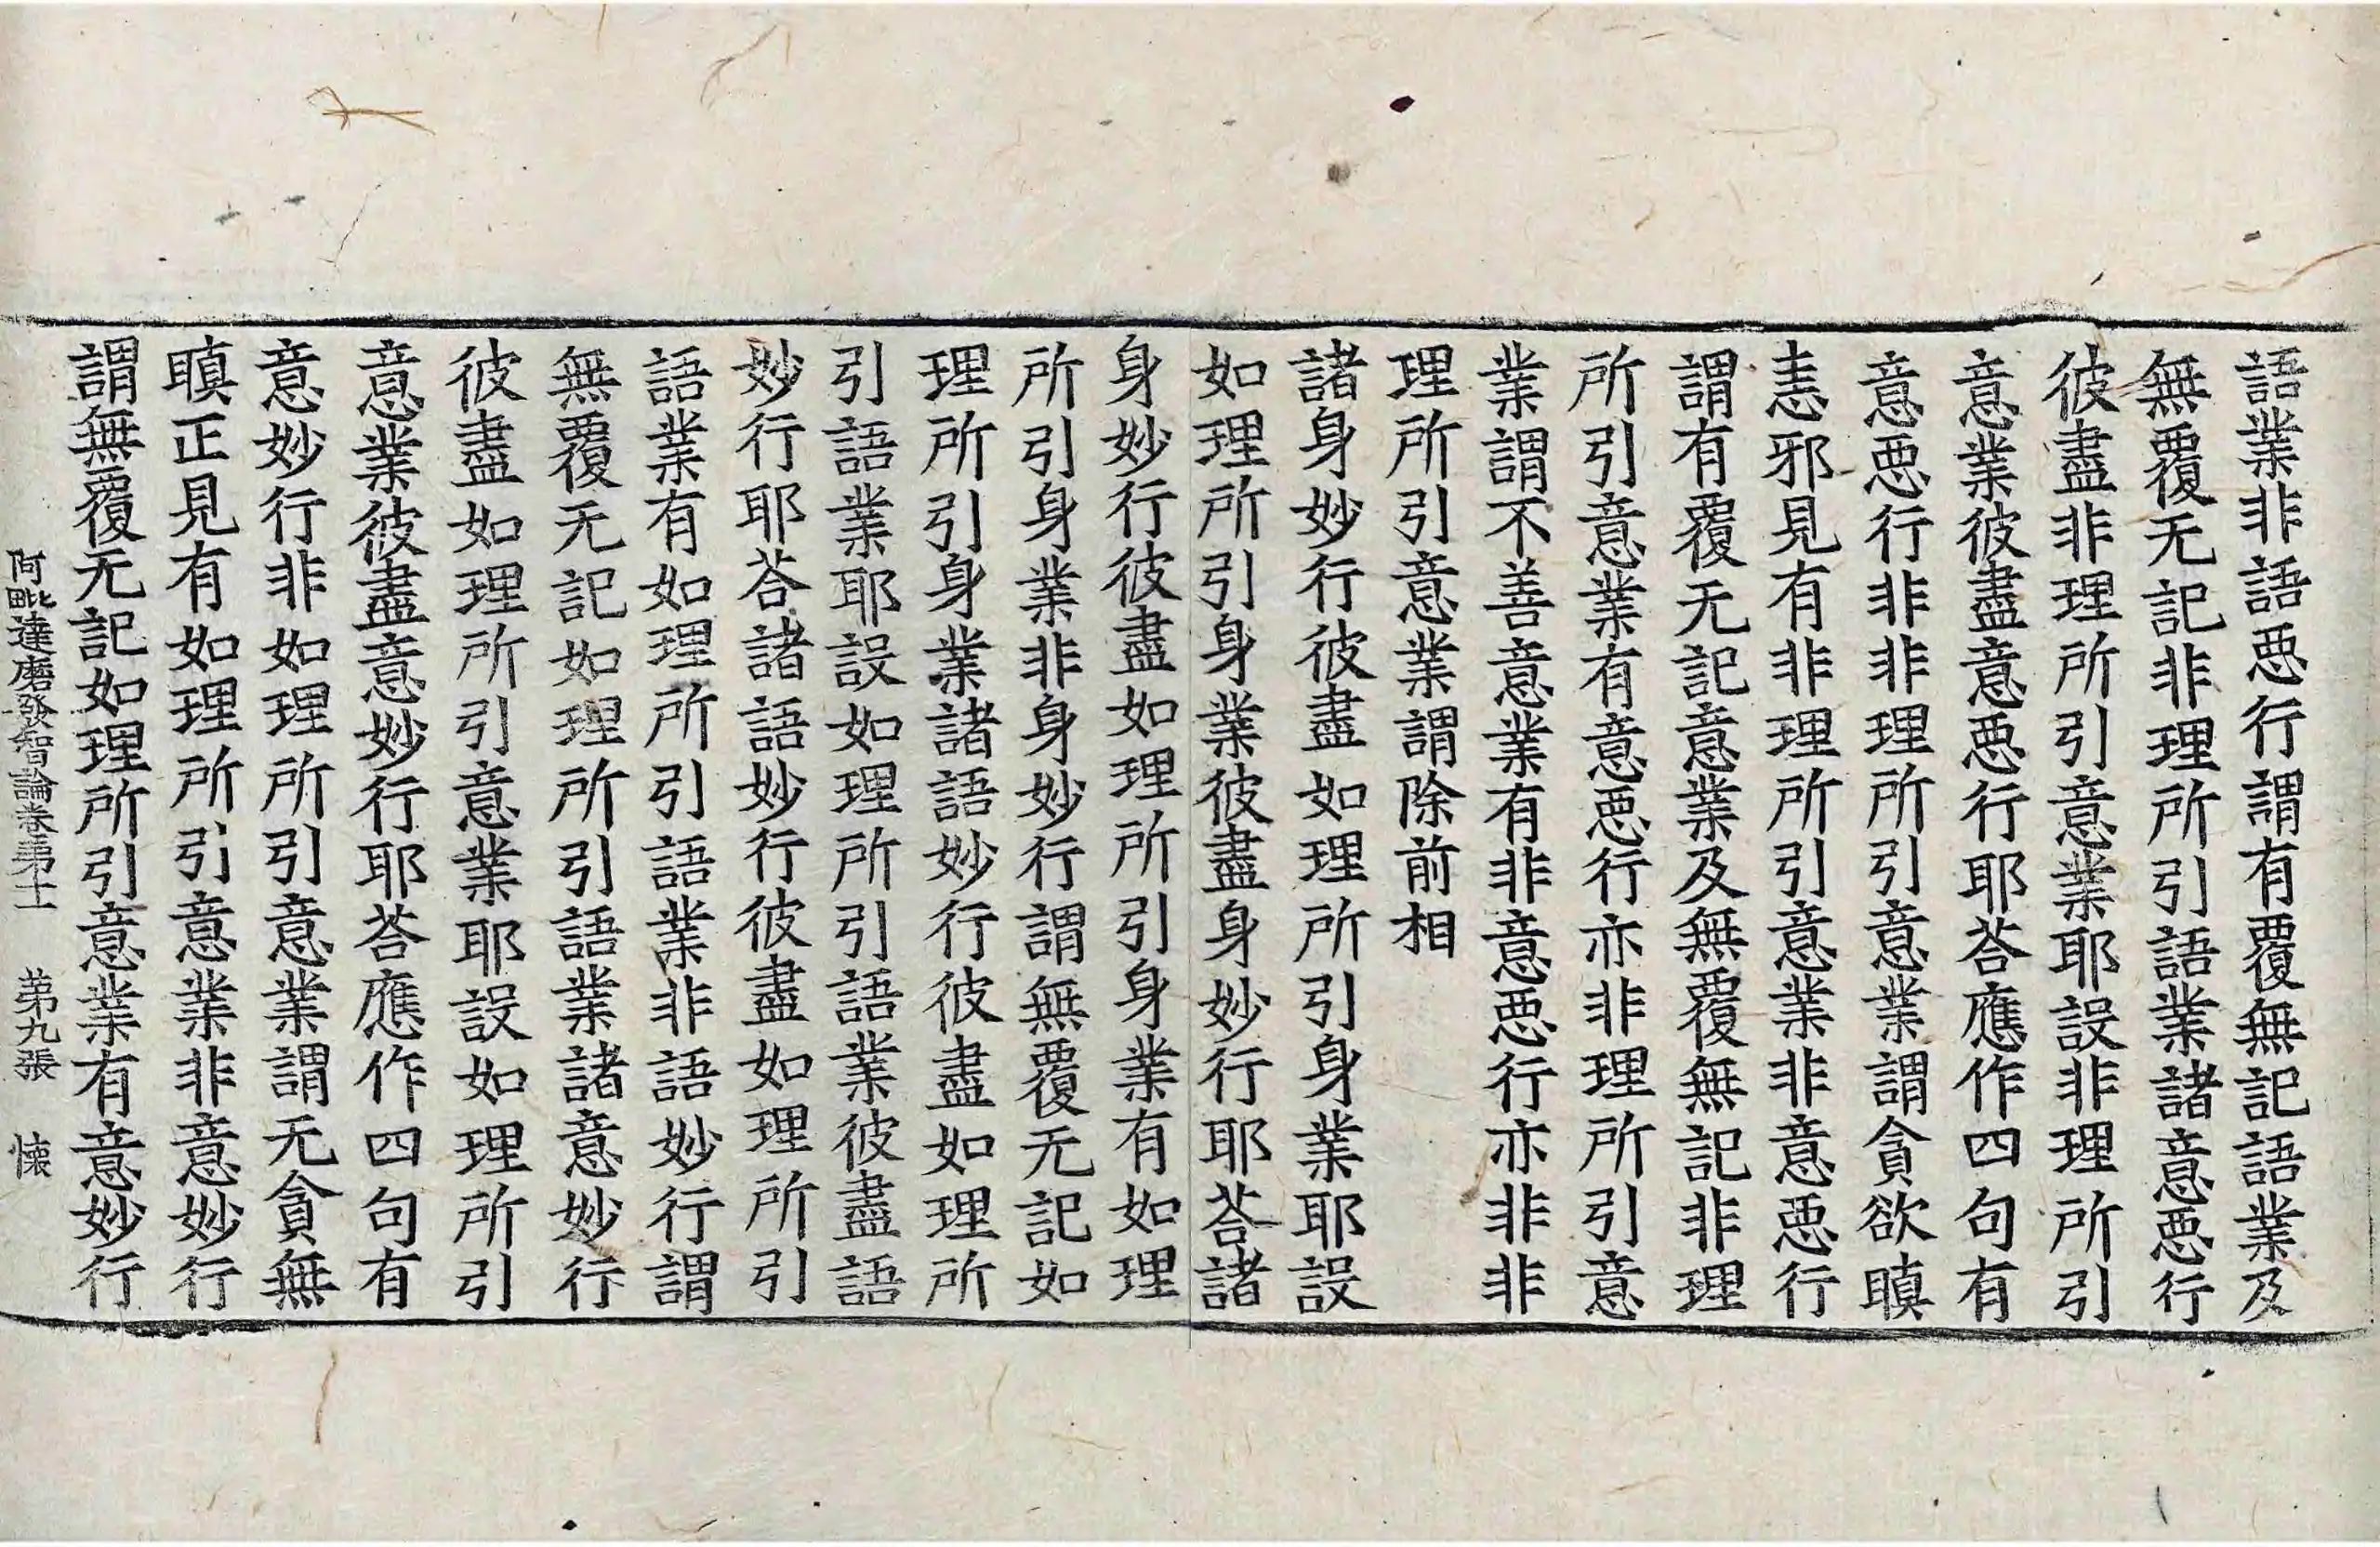 語業非語惡行謂有覆無記語業及
無覆无記非理所引語業諸意惡行
彼盡非理所引意業耶設非理所引
意業彼盡意惡行耶荅應作四句有
意惡行非非理所引意業謂貪欲瞋
恚邪見有非理所引意業非意惡行
謂有覆无記意業及無覆無記非理
所引意業有意惡行亦非理所引意
業謂不善意業有非意惡行亦非非
理所引意業謂除前相
諸身妙行彼盡如理所引身業耶設
如理所引身業彼盡身妙行耶荅諸
身妙行彼盡如理所引身業有如理
所引身業非身妙行謂無覆无記如
理所引身業諸語妙行彼盡如理所
引語業耶設如理所引語業彼盡語
妙行耶荅諸語妙行彼盡如理所引
語業有如理所引語業非語妙行謂
無覆无記如理所引語業諸意妙行
彼盡如理所引意業耶設如理所引
意業彼盡意妙行耶荅應作四句有
意妙行非如理所引意業謂无貪無
瞋正見有如理所引意業非意妙行
謂無覆无記如理所引意業有意妙行
阿毗達磨發智論卷苐十一 苐九張 懐